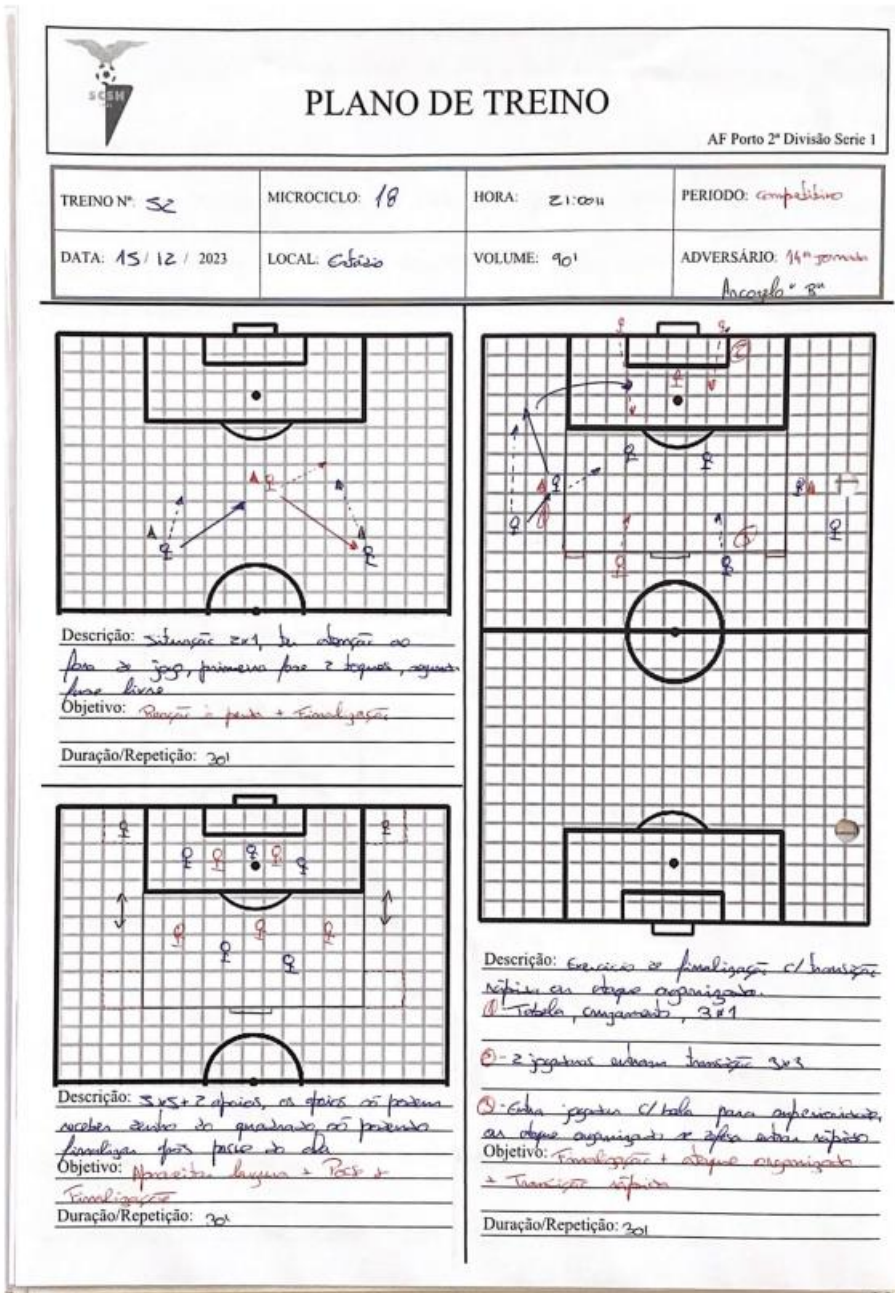 SCSH
PLANO DE TREINO
AF Porto 2ª Divisão Serie 1
TREINO Nº: 52
MICROCICLO: 18
HORA: 21:00H
PERIODO: competitivo
DATA: 15/12/2023
LOCAL: Estádio
VOLUME: 90'
ADVERSÁRIO: 14ª jornada
Arcozelo "B"
Descrição: Situação 2x1, ter atenção ao
fora de jogo, primeira fase 2 toques, segunda
fase livre
Objetivo: Reação à perda + Finalização
Duração/Repetição: 30'
Descrição: 5x5+2 apoios, os apoios só podem
receber dentro do quadrado, só podendo
finalizar após passe do ala
Objetivo: Aproveitar largura + Posse +
Finalização
Duração/Repetição: 30'
1
2
3
Descrição: Exercício de finalização c/ transição
rápida ou ataque organizado.
1 - Tabela, cruzamento, 3x1
2 - 2 jogadores entram transição 3x3
3 - Entra jogador c/ bola para superioridade,
ou ataque organizado se defesa entrar rápido
Objetivo: Finalização + ataque organizado
+ Transição rápida
Duração/Repetição: 30'